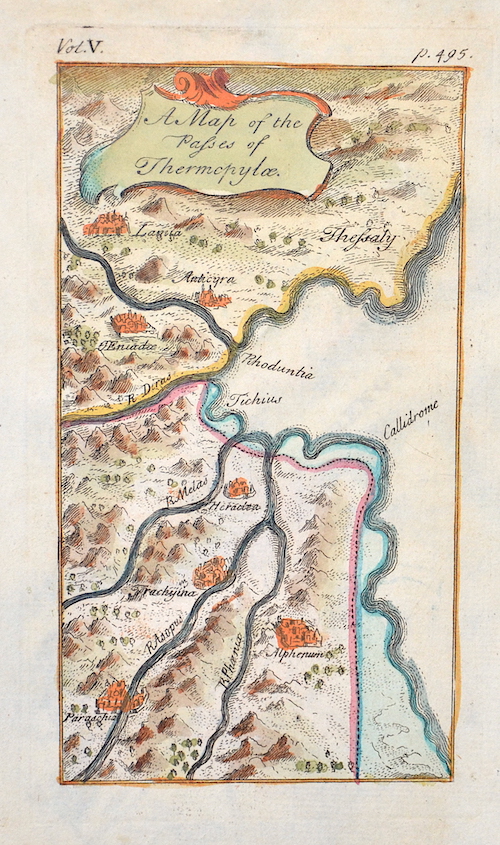 Vol. V.
p. 495.
A Map of the
Passes of
Thermopylæ.
Lamia
Thessaly
Anticyra
Æniadæ
Rhoduntia
R Diras
Tichius
Callidrome
R. Melas
Heraclea
Trachyina
R Asopus
R Phœnix
Alphenum